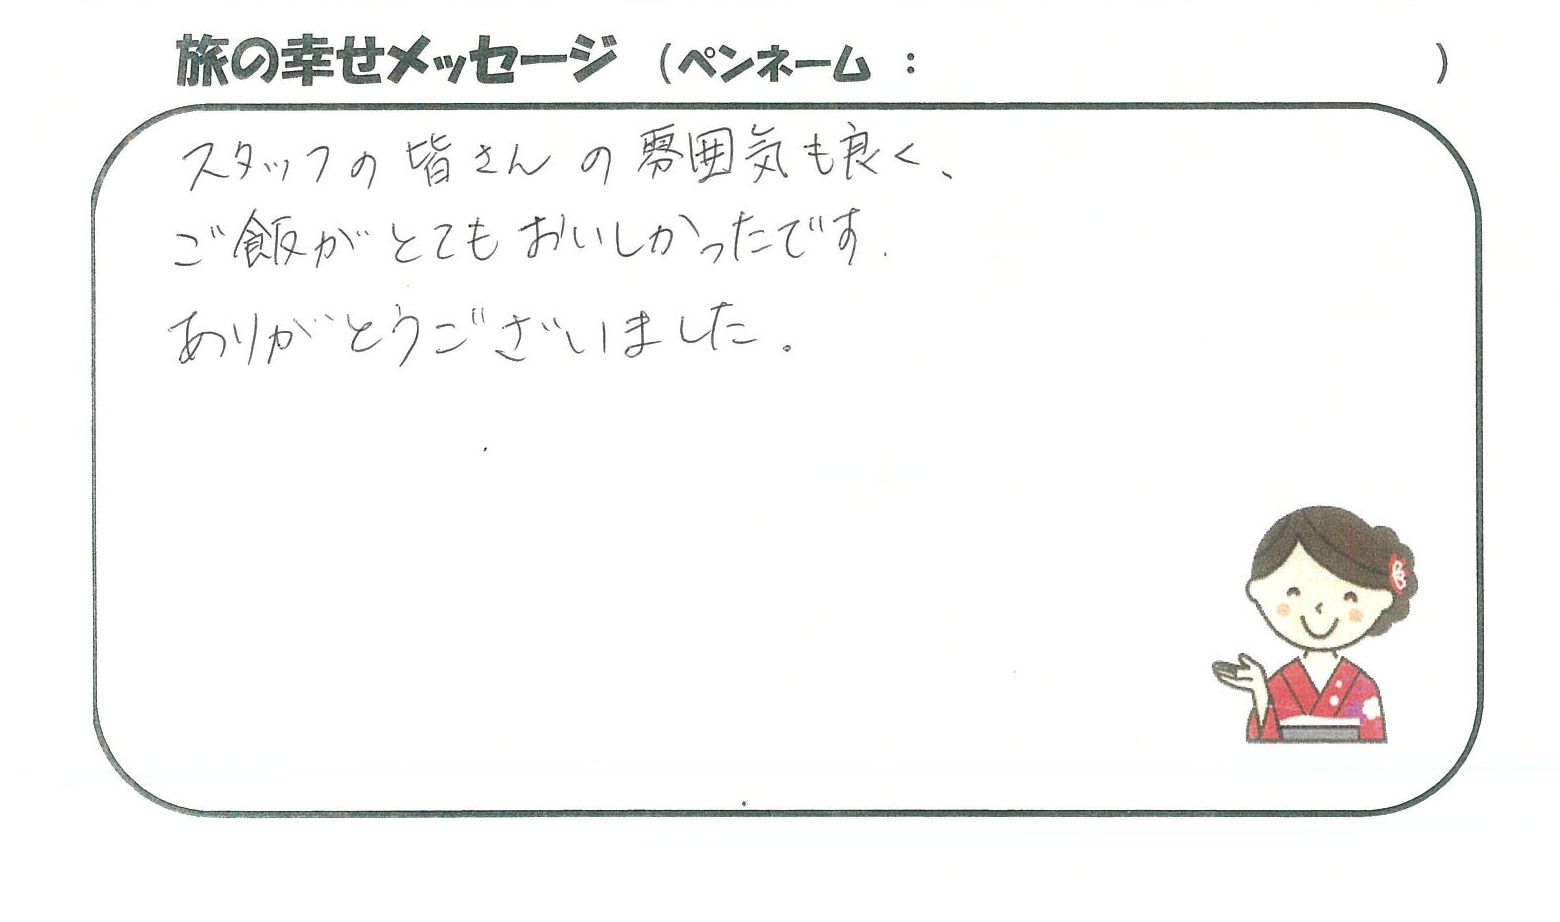 旅の幸せメッセージ （ペンネーム ： ）
スタッフの皆さんの雰囲気も良く、
ご飯がとてもおいしかったです.
ありがとうございました。